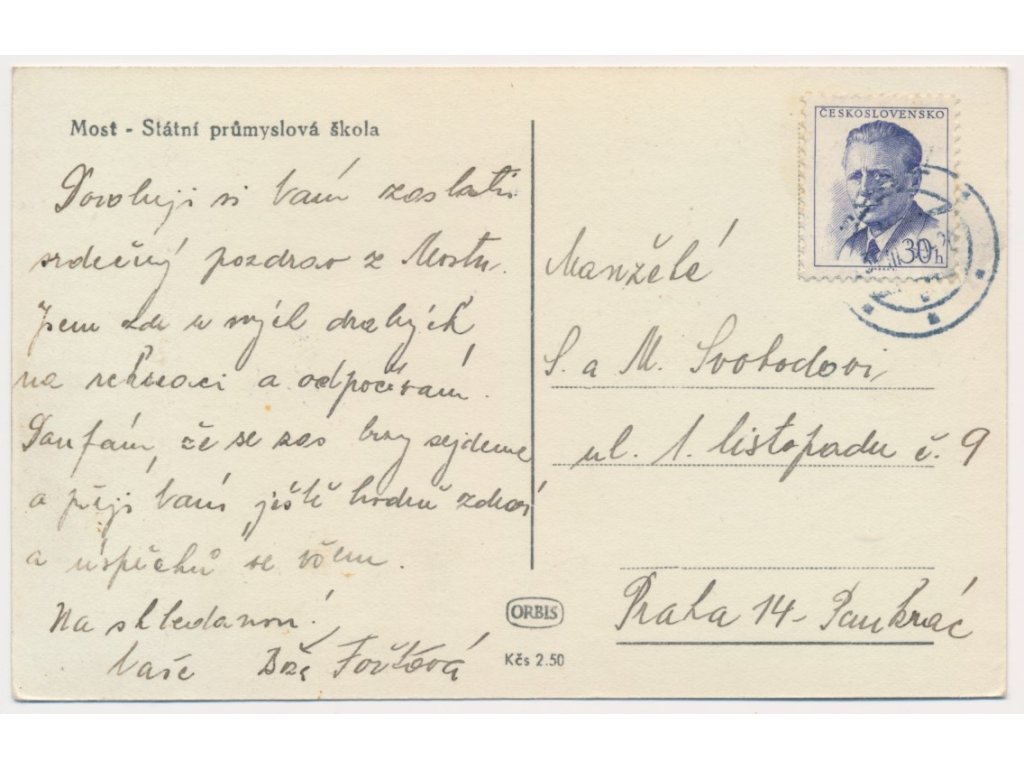 Most - Státní průmyslová škola
Dovoluji si Vám zaslati
srdečný pozdrav z Mostu.
Jsem zde u mých drahých
na rekreaci a odpočívám.
Doufám, že se zas brzy sejdeme
a přeji Vám ještě hodně zdraví
a úspěchů ve všem.
Na shledanou!
Vaše Foltová
ORBIS
Kčs 2.50
ČESKOSLOVENSKO
30h
Manželé
S. a M. Svobodovi
ul. 1. listopadu č. 9
Praha 14 - Pankrác